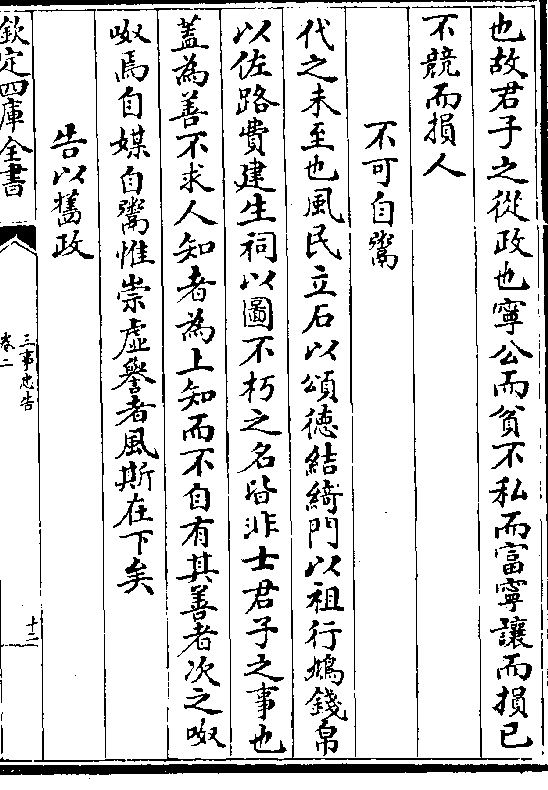 也故君子之從政也寧公而貧不私而富寧讓而損已
不競而損人
不可自鬻
代之未至也風民立石以頌徳結綺門以祖行鳩錢帛
以佐路費建生祠以圖不朽之名皆非士君子之事也
蓋為善不求人知者為上知而不自有其善者次之呶
呶焉自媒自鬻惟崇虛譽者風斯在下矣
告以舊政
欽定四庫全書
三事忠告
卷二
十二